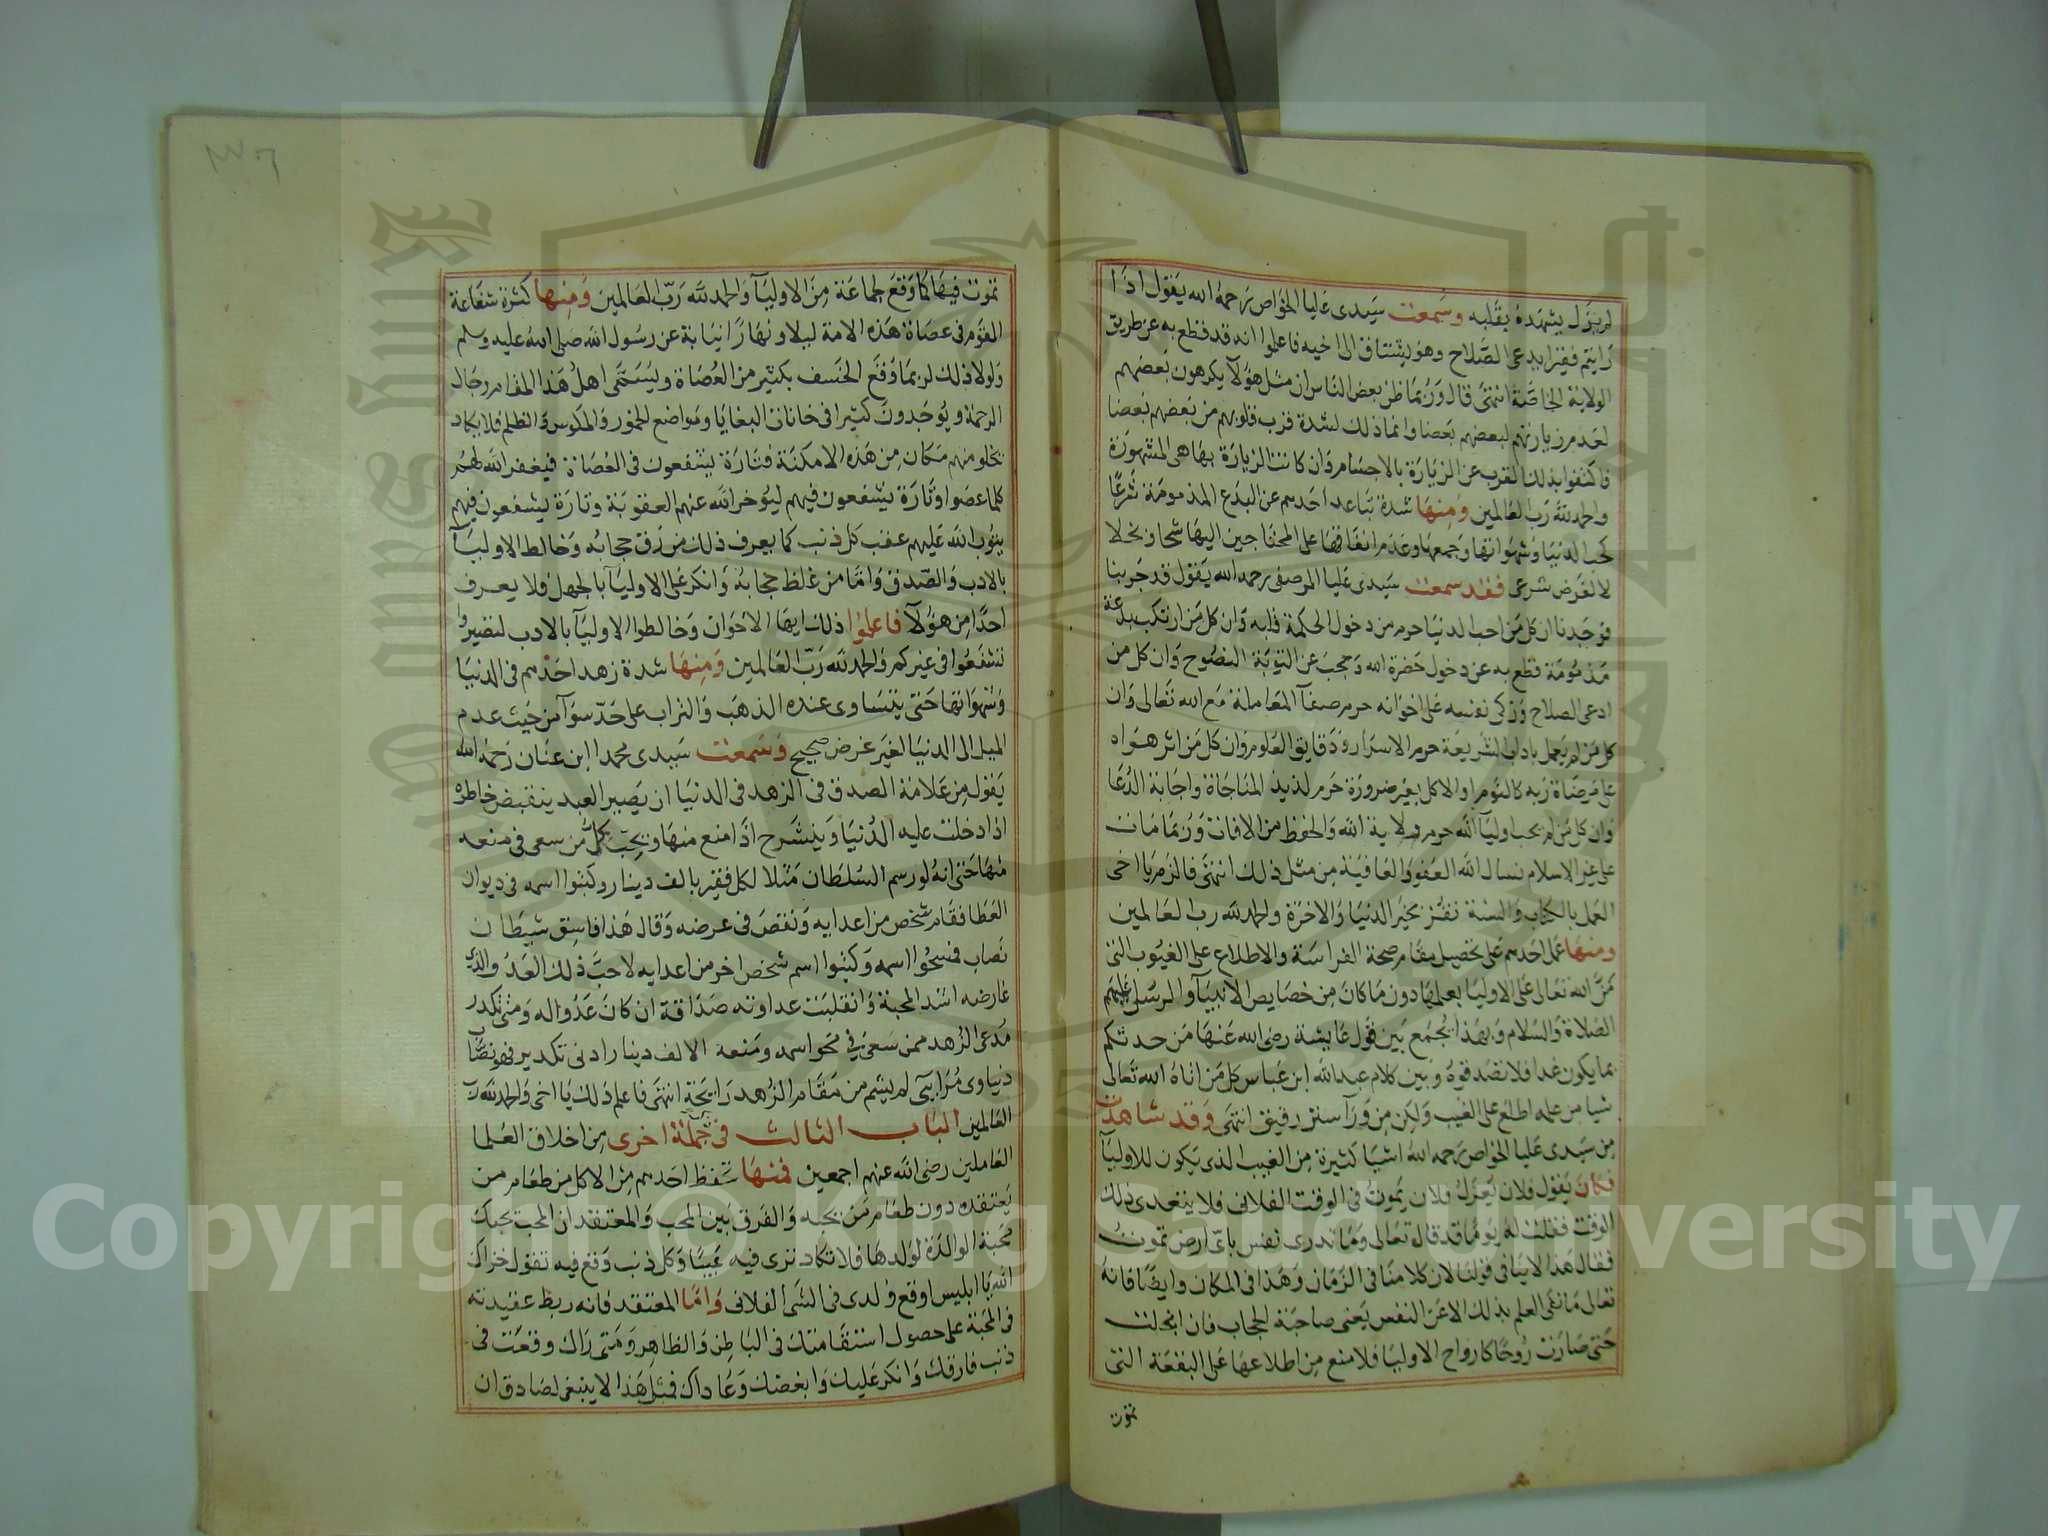 لم يزل يشهده بقلبه وسمعت سيدى عليا الخواص رحمه الله يقول اذا
رايتم فقيرا يدعى الصلاح وهو يشتاق الى اخيه فاعلموا انه قد قطع به عن طريق
الولاية الخاصة انتهى قال وربما ظن بعض الناس ان مثل هولآ يكرهون بعضهم
لعدم زيارتهم لبعضهم بعضا وانما ذلك لشدة قرب قلوبهم من بعضهم بعضا
فاكتفوا بذلك القرب عن الزيارة بالاجسام وان كانت الزيارة بها هى المشهورة
والحمد لله رب العالمين ومنها شدة تباعد احدهم عن البدع المذمومة شرعا
كحب الدنيا وشهواتها وجمعها وعدم انفاقها على المحتاجين اليها شحا وبخلا
لا لغرض شرعى فقد سمعت سيدى عليا المرصفى رحمه الله يقول قد جربنا
فوجدنا ان كل من احب الدنيا حرم من دخول الحكمة قلبه وان كل من ارتكب بدعة
مذمومة قطع به عن دخول حضرة الله وحجب عن التوبة النصوح وان كل من
ادعى الصلاح وزكى نفسه على اخوانه حرم صفآ المعاملة مع الله تعالى وان
كل من لم يعمل باداب الشريعة حرم الاسرار ودقايق العلوم وان كل من اثر هواه
على مرضاة ربه كالنوم او الاكل بغير ضرورة حرم لذيذ المناجاة واجابة الدعا
وان كل من لم يحب اوليآ الله حرم ولاية الله والحفظ من الافات وربما مات
على غير الاسلام نسال الله العفو والعافية من مثل ذلك انتهى فالزم يا اخى
العمل بالكتاب والسنة تفز بخير الدنيا والاخرة والحمد لله رب العالمين
ومنها عمل احدهم على تحصيل مقام صحة الفراسة والاطلاع على الغيوب التى
من الله تعالى على الاوليا بعلمها دون ما كان من خصايص الانبيآ والمرسلين عليهم
الصلاة والسلام وبهذا يجمع بين قول عايشة رضى الله عنها من حدثكم
بما يكون غدا فلا تصدقوه وبين كلام عبد الله ابن عباس كل من اتاه الله تعالى
شيا من علمه اطلع على الغيب ولكن من ورآ ستر رقيق انتهى وقد شاهدت
من سيدى عليا الخواص رحمه الله اشيا كثيرة من الغيب الذى يكون للاوليآ
فكان يقول فلان يعزل فلان يموت فى الوقت الفلانى فلا يتعدى ذلك
الوقت فقلت له يوما قد قال تعالى وما تدرى نفس باى ارض تموت
فقال هذا لا ينافى قولنا لان كلامنا فى الزمان وهذا فى المكان وايضا فانه
تعالى ما نفى العلم بذلك الا عن النفس يعنى صاحبة الحجاب فان انجلت
حتى صارت روحا كارواح الاوليا فلا منع من اطلاعها على البقعة التى
تموت
٣٠٦
تموت فيها كما وقع لجماعة من الاوليآ والحمد لله رب العالمين ومنها كثرة شفاعة
القوم فى عصاة هذه الامة ليلا ونهارا نيابة عن رسول الله صلى الله عليه وسلم
ولولا ذلك لربما وقع الخسف بكثير من العصاة ويستمى اهل هذا المقام رجال
الرحمة ويوجدون كثيرا فى خانات البغايا ومواضع الخمور والمكوس والظلم فلا يكاد
يخلو منهم مكان من هذه الامكنة فتارة يشفعون فى العصاة فيغفر الله لهم
كلما عصوا وتارة يشفعون فيهم ليوخر الله عنهم العقوبة وتارة يشفعون فيهم
يتوب الله عليهم عقب كل ذنب كما يعرف ذلك من رق حجابه وخالط الاوليآ
بالادب والصدق واما من غلظ حجابه وانكر على الاوليآ بالجهل فلا يعرف
احدا من هولآ فاعلموا ذلك ايها الاخوان وخالطوا الاوليآ بالادب لتصيروا
تشفعوا فى غيركم والحمد لله رب العالمين ومنها شدة زهد احدهم فى الدنيا
وشهواتها حتى يتساوى عنده الذهب والتراب على حد سوآ من حيث عدم
الميل الى الدنيا لغير غرض صحيح وسمعت سيدى محمدا ابن عنان رحمه الله
يقول من علامة الصدق فى الزهد فى الدنيا ان يصير العبد ينقبض خاطره
اذا دخلت عليه الدنيا وينشرح اذا منع منها ويحب كل من سعى فى منعه
منها حتى انه لو رسم السلطان مثلا لكل فقير بالف دينار وكتبوا اسمه فى ديوان
العطا فقام شخص من اعدايه ونقص فى عرضه وقال هذا فاسق شيطان
نصاب فمسحوا اسمه وكتبوا اسم شخص اخر من اعدايه لاحب ذلك العدو الذى
عارضه اشد المحبة وانقلبت عداوته صداقة ان كان عدوا له ومتى تكدر
مدعى الزهد ممن سعى فى محو اسمه ومنعه الالف دينار ادنى تكدير فهو نصاب
دنياوى مرآيى لم يشم من مقام الزهد رايحة انتهى فاعلم ذلك يا اخى والحمد لله رب
العالمين الباب الثالث فى جملة اخرى من اخلاق العلما
العاملين رضى الله عنهم اجمعين فمنها تحفظ احدهم من الاكل من طعام من
يعتقده دون طعام من يحبه والفرق بين المحب والمعتقد ان المحب يحبك
محبة الوالدة لولدها فلا تكاد ترى فيه عيبا وكل ذنب وقع فيه تقول خزاك
الله يا ابليس اوقع ولدى فى الشى الفلانى واما المعتقد فانه ربط عقيدته
فى المحبة على حصول استقامتك فى الباطن والظاهر ومتى راك وقعت فى
ذنب فارقك وانكر عليك وابغضك وعاداك فمثل هذا لا ينبغى لصادق ان
Copyright © King Saud University